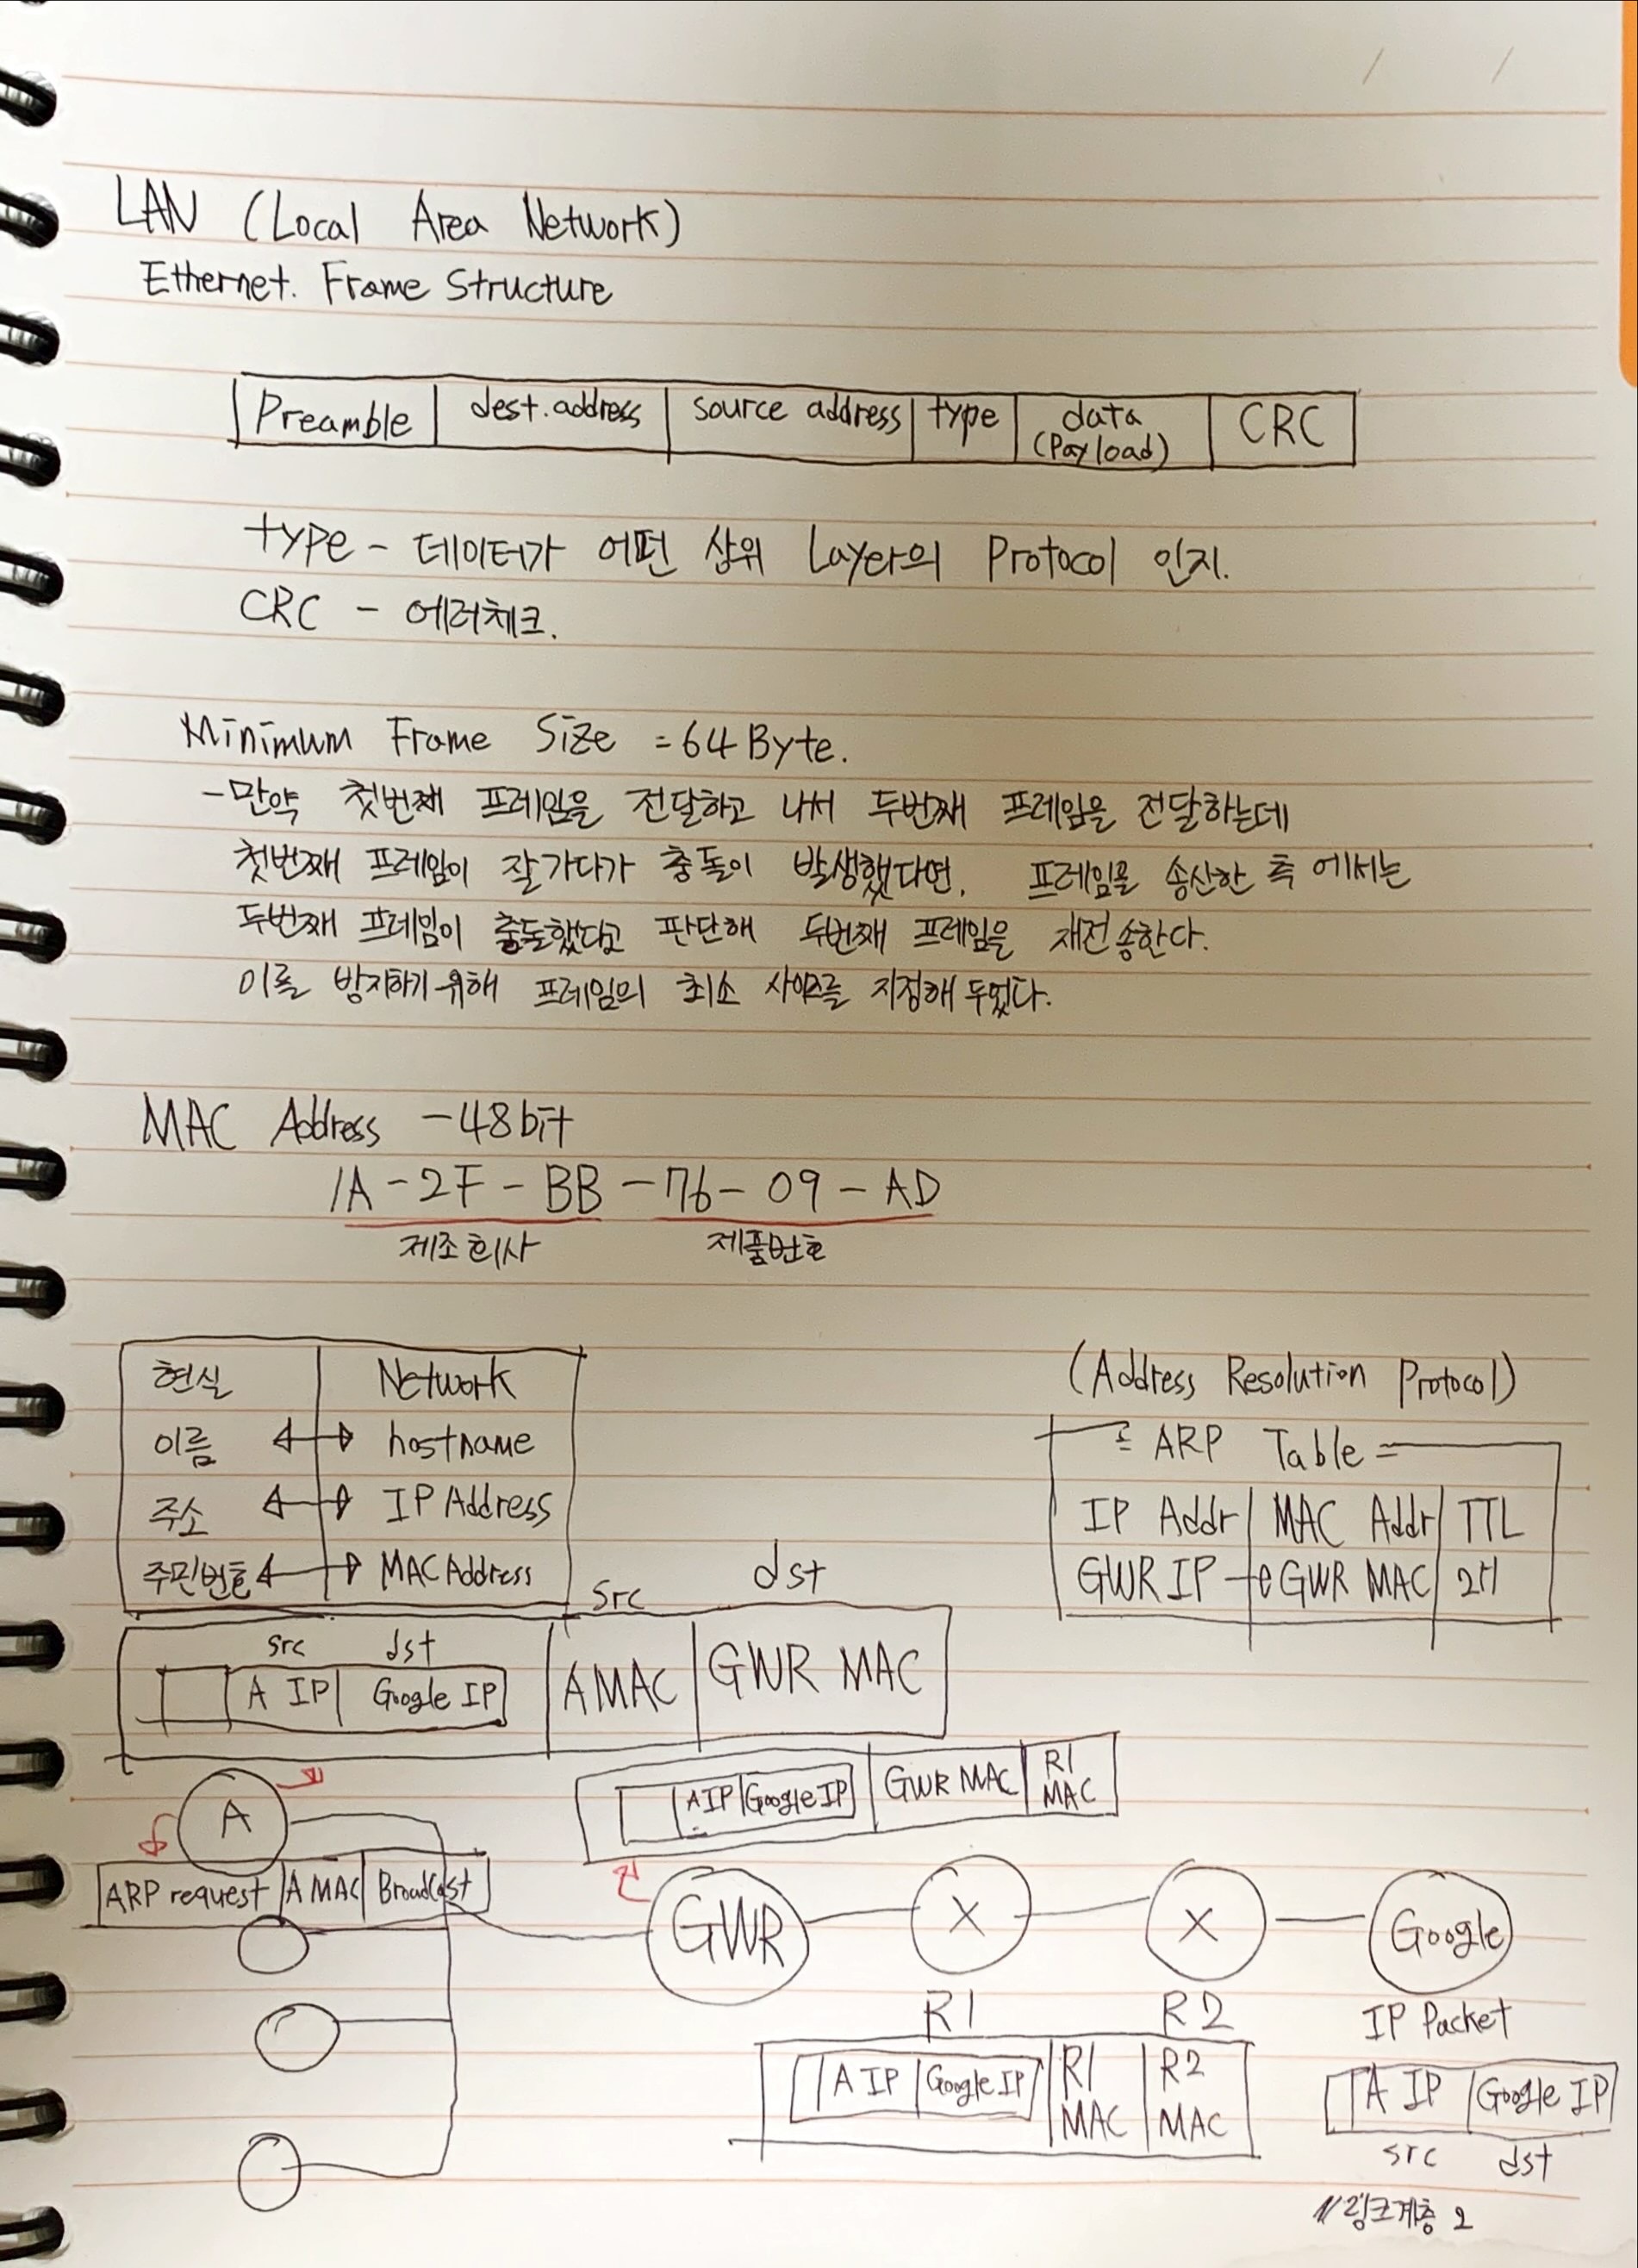 LAN (Local Area Network)
Ethernet. Frame Structure
Preamble dest.address source address type data (Payload) CRC
type - 데이터가 어떤 상위 Layer의 Protocol 인지.
CRC - 에러체크.
Minimum Frame Size = 64 Byte.
- 만약 첫번째 프레임을 전달하고 나서 두번째 프레임을 전달하는데
첫번째 프레임이 잘가다가 충돌이 발생했다면, 프레임을 송신한 측 에서는
두번째 프레임이 충돌했다고 판단해 두번째 프레임을 재전송한다.
이를 방지하기 위해 프레임의 최소 사이즈를 지정해 두었다.
MAC Address - 48bit
1A - 2F - BB - 76 - 09 - AD
제조회사 제품번호
현실 Network
이름 hostname
주소 IP Address
주민번호 MAC Address
(Address Resolution Protocol)
= ARP Table =
IP Addr MAC Addr TTL
GWR IP GWR MAC
src dst
src dst
A IP Google IP A MAC GWR MAC
A IP Google IP GWR MAC R1 MAC
A
ARP request A MAC Broadcast
GWR X X Google
R1 R2 IP Packet
A IP Google IP R1 MAC R2 MAC
A IP Google IP
src dst
링크계층 2